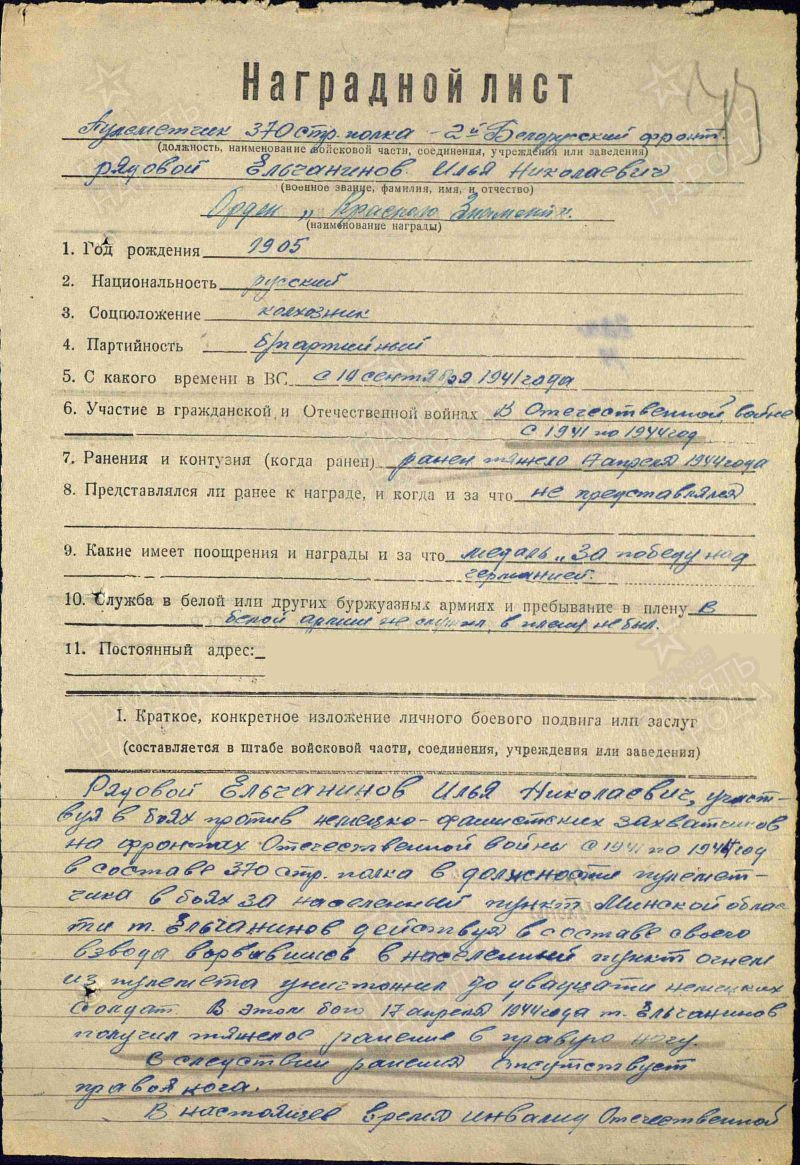 Наградной лист
Пулеметчик 370 стр. полка - 2й Белорусский фронт.
(должность, наименование войсковой части, соединения, учреждения или заведения)
рядовой Ельчанинов Илья Николаевич
(военное звание, фамилия, имя, и отчество)
Орден „Красного Знамени".
(наименование награды)
1. Год рождения 1905
2. Национальность русский
3. Соцположение колхозник
4. Партийность б/партийный
5. С какого времени в ВС с 10 сентября 1941 года
6. Участие в гражданской и Отечественной войнах В Отечественной войне
с 1941 по 1944 год
7. Ранения и контузия (когда ранен) ранен тяжело 17 апреля 1944 года
8. Представлялся ли ранее к награде, и когда и за что не представлялся
9. Какие имеет поощрения и награды и за что медаль „За победу над
германией.
10. Служба в белой или других буржуазных армиях и пребывание в плену В
белой армии не служил, в плену не был.
11. Постоянный адрес:
I. Краткое, конкретное изложение личного боевого подвига или заслуг
(составляется в штабе войсковой части, соединения, учреждения или заведения)
Рядовой Ельчанинов Илья Николаевич, участ-
вуя в боях против немецко-фашистских захватчиков
на фронтах Отечественной войны с 1941 по 1944 год
в составе 370 стр. полка в должности пулемет-
чика в боях за населенный пункт Минской облас-
ти т. Ельчанинов действуя в составе своего
взвода ворвавшись в населенный пункт огнем
из пулемета уничтожил до двадцати немецких
солдат. В этом бою 17 апреля 1944 года т. Ельчанинов
получил тяжелое ранение в правую ногу.
В следствии ранения отсутствует
правая нога.
В настоящее время инвалид Отечественной